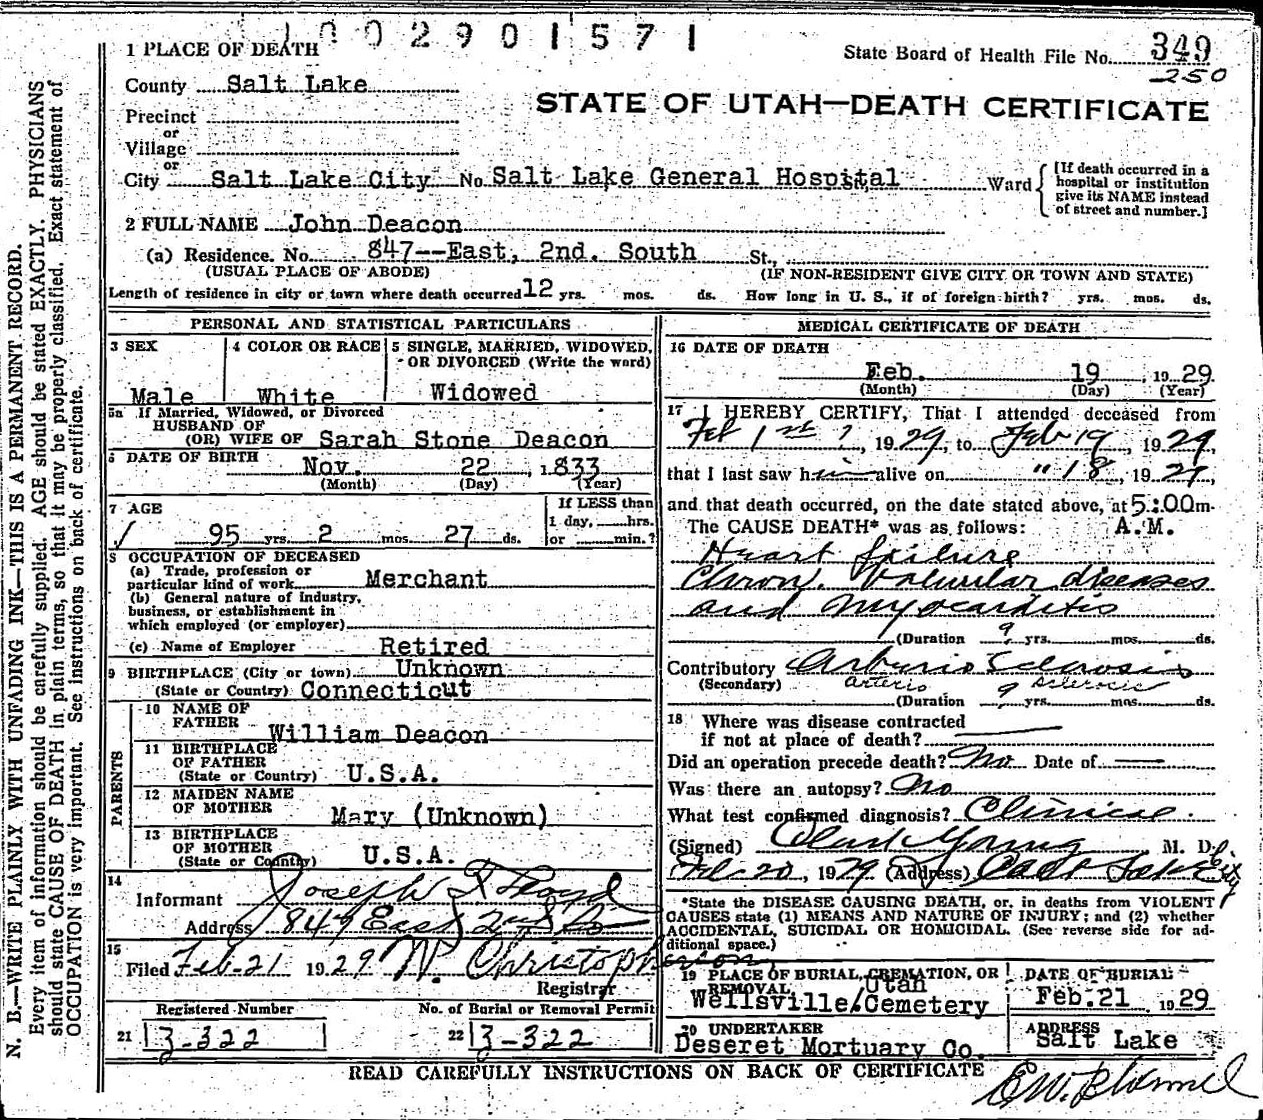 1002901571
1 PLACE OF DEATH
State Board of Health File No. 349
250
County Salt Lake
STATE OF UTAH—DEATH CERTIFICATE
Precinct
or
Village
or
City Salt Lake City No. Salt Lake General Hospital Ward
[If death occurred in a
hospital or institution
give its NAME instead
of street and number.]
2 FULL NAME John Deacon
(a) Residence. No. 847--East, 2nd. South St.,
(USUAL PLACE OF ABODE) (IF NON-RESIDENT GIVE CITY OR TOWN AND STATE)
Length of residence in city or town where death occurred 12 yrs. mos. ds. How long in U. S., if of foreign birth? yrs. mos. ds.
PERSONAL AND STATISTICAL PARTICULARS
3 SEX
Male
4 COLOR OR RACE
White
5 SINGLE, MARRIED, WIDOWED,
OR DIVORCED (Write the word)
Widowed
5a If Married, Widowed, or Divorced
HUSBAND OF
(OR) WIFE OF Sarah Stone Deacon
6 DATE OF BIRTH
Nov. 22, 1833
(Month) (Day) (Year)
7 AGE
95 yrs. 2 mos. 27 ds.
If LESS than
1 day, hrs.
or min.?
8 OCCUPATION OF DECEASED
(a) Trade, profession or
particular kind of work Merchant
(b) General nature of industry,
business, or establishment in
which employed (or employer)
(c) Name of Employer Retired
9 BIRTHPLACE (City or town) Unknown
(State or Country) Connecticut
PARENTS
10 NAME OF
FATHER
William Deacon
11 BIRTHPLACE
OF FATHER
(State or Country) U.S.A.
12 MAIDEN NAME
OF MOTHER
Mary (Unknown)
13 BIRTHPLACE
OF MOTHER
(State or Country) U.S.A.
14
Informant Joseph Floyd
Address 849 East 2nd So
15
Filed Feb-21 1929 W. Christopherson
Registrar
Registered Number
21 3-322
No. of Burial or Removal Permit
22 3-322
MEDICAL CERTIFICATE OF DEATH
16 DATE OF DEATH
Feb. 19, 1929
(Month) (Day) (Year)
17 I HEREBY CERTIFY, That I attended deceased from
Feb 1st ?, 1929, to Feb 19 1929
that I last saw him alive on " 18, 1929,
and that death occurred, on the date stated above, at 5:00m.
The CAUSE DEATH* was as follows: A.M.
Heart failure
Chron. Valvular diseases
and Myocarditis
(Duration ? yrs. mos. ds.
Contributory Arterio Sclerosis
(Secondary) arterio sclerosis
(Duration ? yrs. mos. ds.
18 Where was disease contracted
if not at place of death?
Did an operation precede death? No Date of
Was there an autopsy? No
What test confirmed diagnosis? Clinical
(Signed) Young M. D.
Feb 20, 1929 (Address) Salt Lake City
*State the DISEASE CAUSING DEATH, or, in deaths from VIOLENT
CAUSES state (1) MEANS AND NATURE OF INJURY; and (2) whether
ACCIDENTAL, SUICIDAL OR HOMICIDAL. (See reverse side for ad-
ditional space.)
19 PLACE OF BURIAL, CREMATION, OR
REMOVAL Utah
Wellsville/Cemetery
DATE OF BURIAL
Feb.21 1929
20 UNDERTAKER
Deseret Mortuary Co.
ADDRESS
Salt Lake
READ CAREFULLY INSTRUCTIONS ON BACK OF CERTIFICATE
E.W.
N. B.—WRITE PLAINLY WITH UNFADING INK—THIS IS A PERMANENT RECORD.
Every item of information should be carefully supplied. AGE should be stated EXACTLY. PHYSICIANS
should state CAUSE OF DEATH in plain terms, so that it may be properly classified. Exact statement of
OCCUPATION is very important. See instructions on back of certificate.